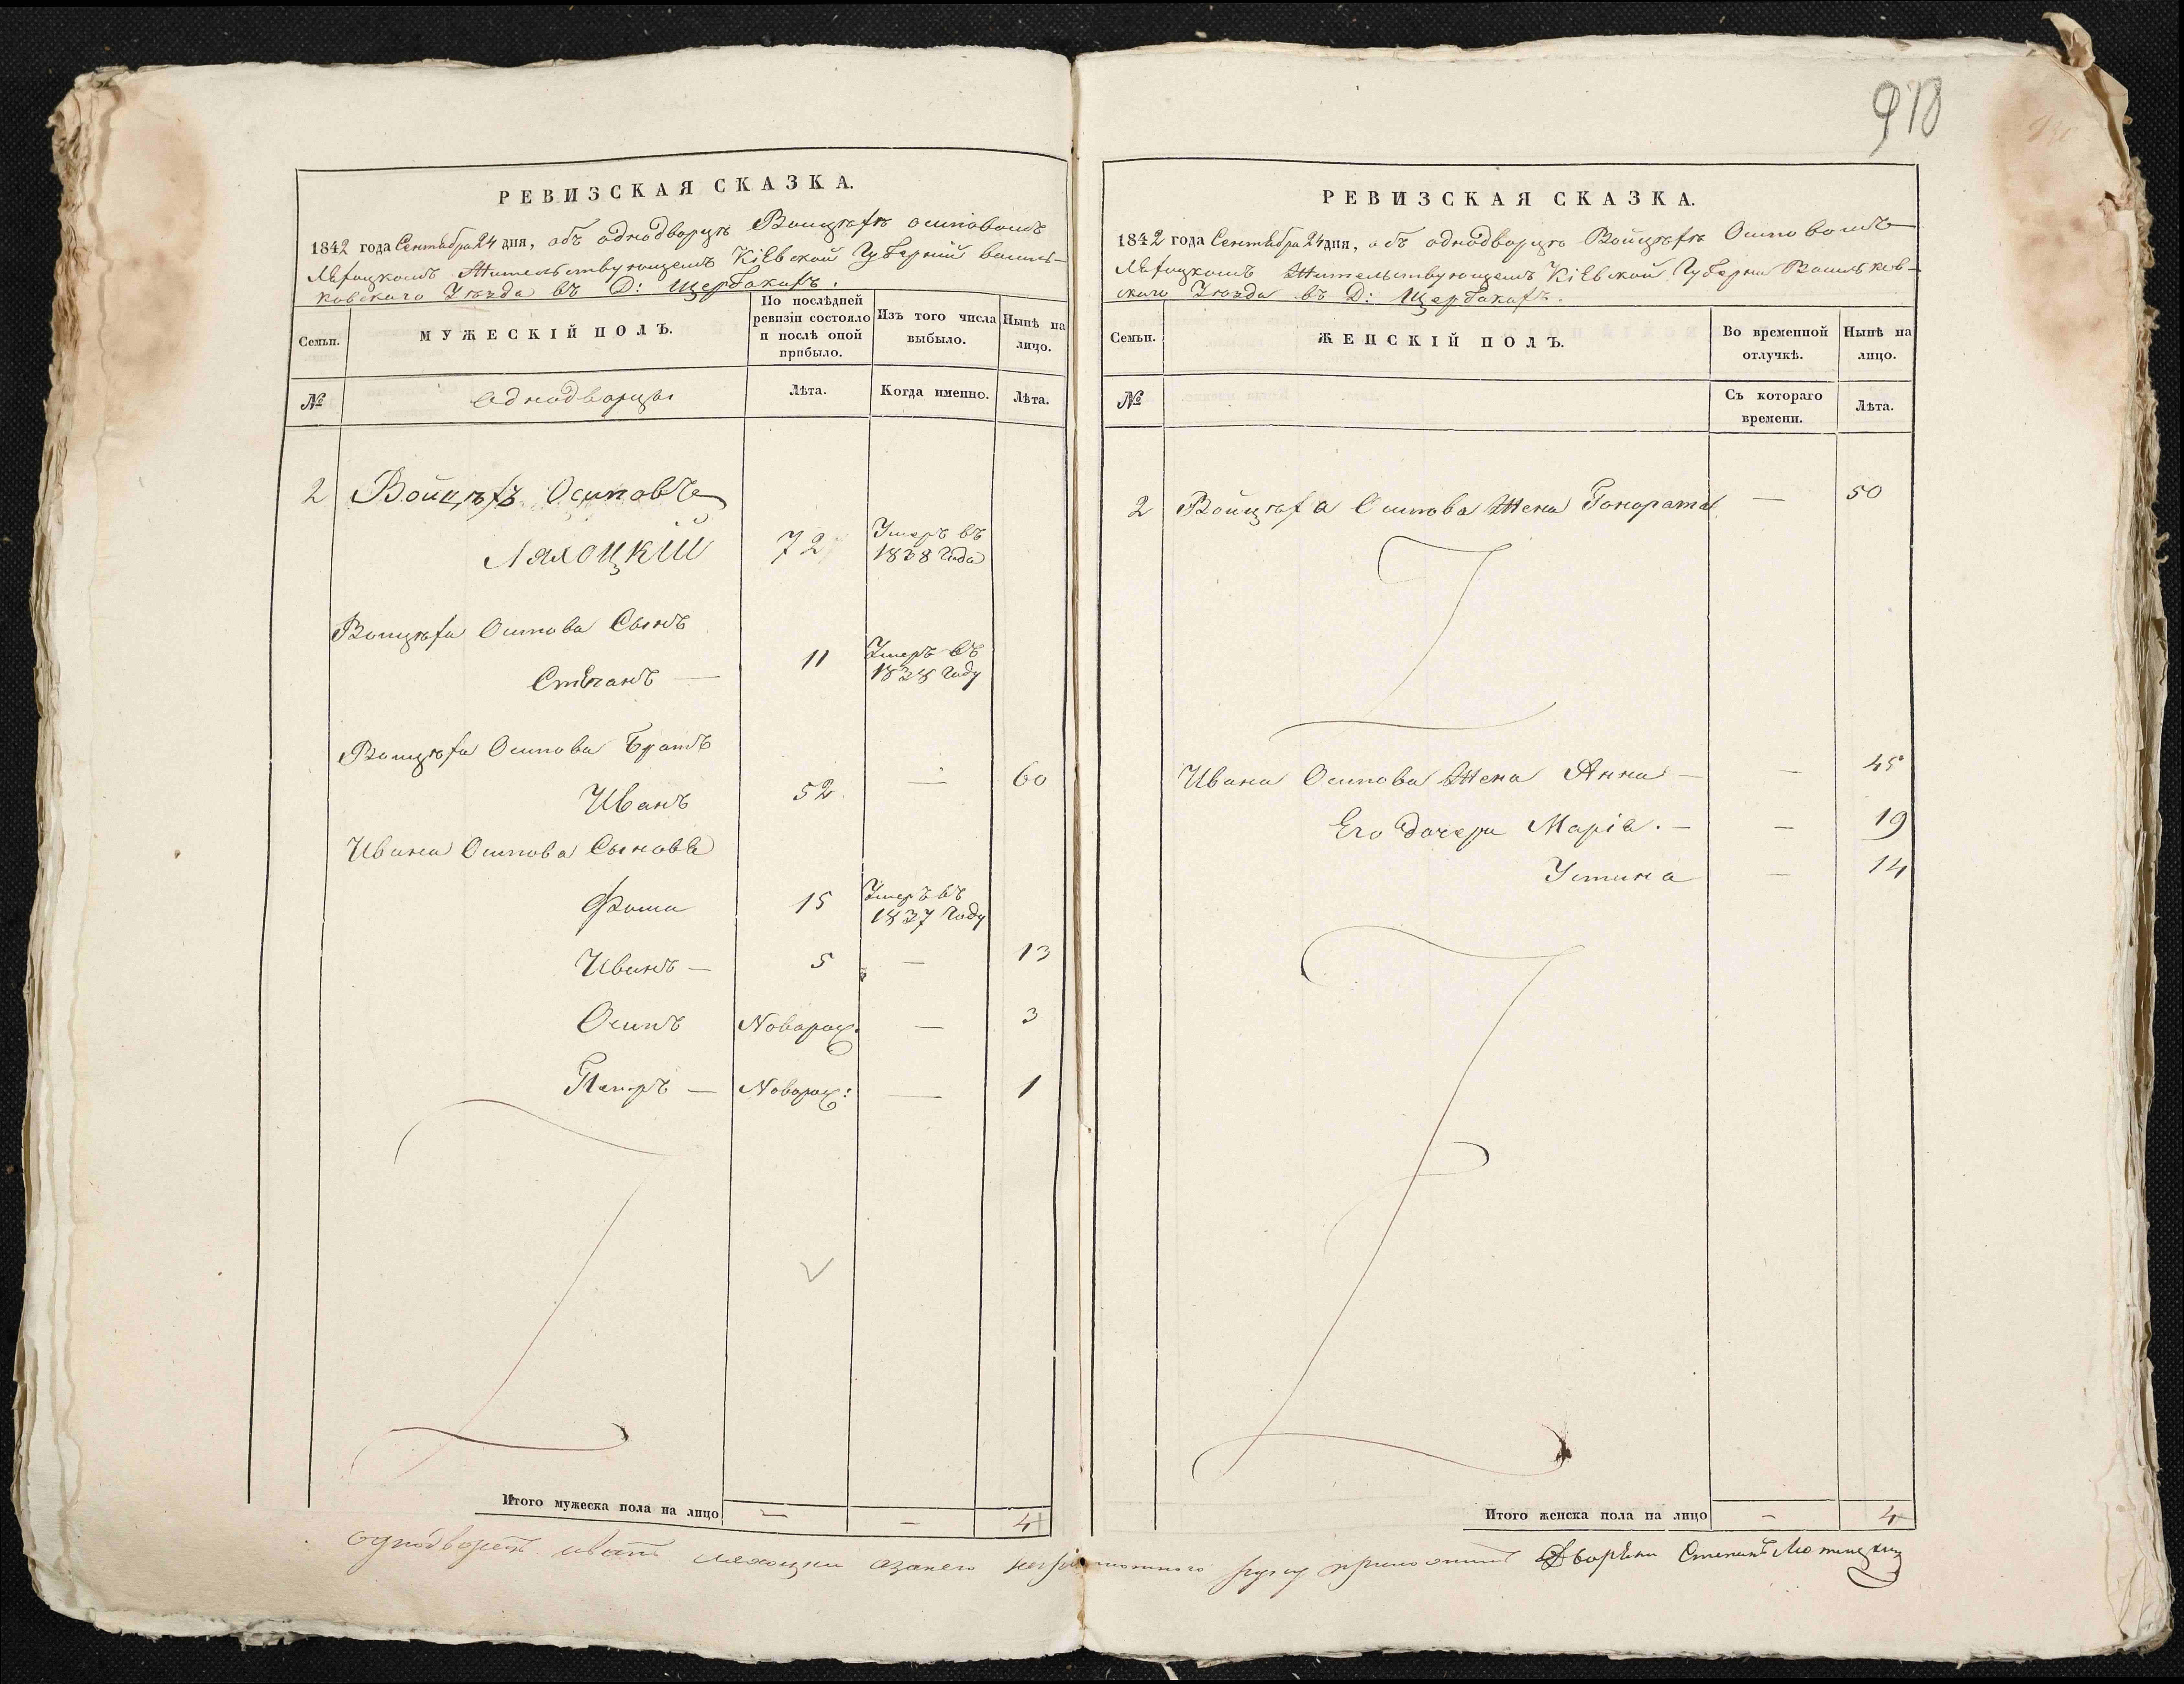 910
РЕВИЗСКАЯ СКАЗКА.
1842 года Сентября 24 дня, объ однодворцѣ Войцѣхѣ Осиповомъ
Ляхоцкомъ Жительствующемъ Кіевской Губерніи Василь-
ковскаго Уѣзда въ Д: Щербакахъ.
Семьи.
МУЖЕСКІЙ ПОЛЪ.
По послѣдней ревизіи состояло и послѣ оной прибыло.
Изъ того числа выбыло.
Нынѣ на лицо.
№
однодворцы
Лѣта.
Когда именно.
Лѣта.
2 Войцѣхъ Осиповъ
Ляхоцкій 72 Умеръ въ 1838 Года
Войцѣха Осипова Сынъ
Степанъ — 11 Умеръ въ 1838 Году
Войцѣха Осипова Братъ
Иванъ 52 — 60
Ивана Осипова Сыновья
Фома 15 Умеръ въ 1837 Году
Иванъ — 5 — 13
Осипъ Новорож. — 3
Петръ — Новорож: — 1
Итого мужеска пола на лицо — — 4
РЕВИЗСКАЯ СКАЗКА.
1842 года Сентября 24 дня, объ однодворцѣ Войцѣхѣ Осиповомъ
Ляхоцкомъ Жительствующемъ Кіевской Губерніи Васильков-
скаго Уѣзда въ Д: Щербакахъ.
Семьи.
ЖЕНСКІЙ ПОЛЪ.
Во временной отлучкѣ.
Нынѣ на лицо.
№
Съ котораго времени.
Лѣта.
2 Войцѣха Осипова Жена Гонората — 50
Ивана Осипова Жена Анна — — 45
Его дочери Марія. — — 19
Устина — 14
Итого женска пола на лицо — 4
однодворецъ иванъ ляхоцки азанего неграмотного руку приложилъ Дворянинъ Степанъ